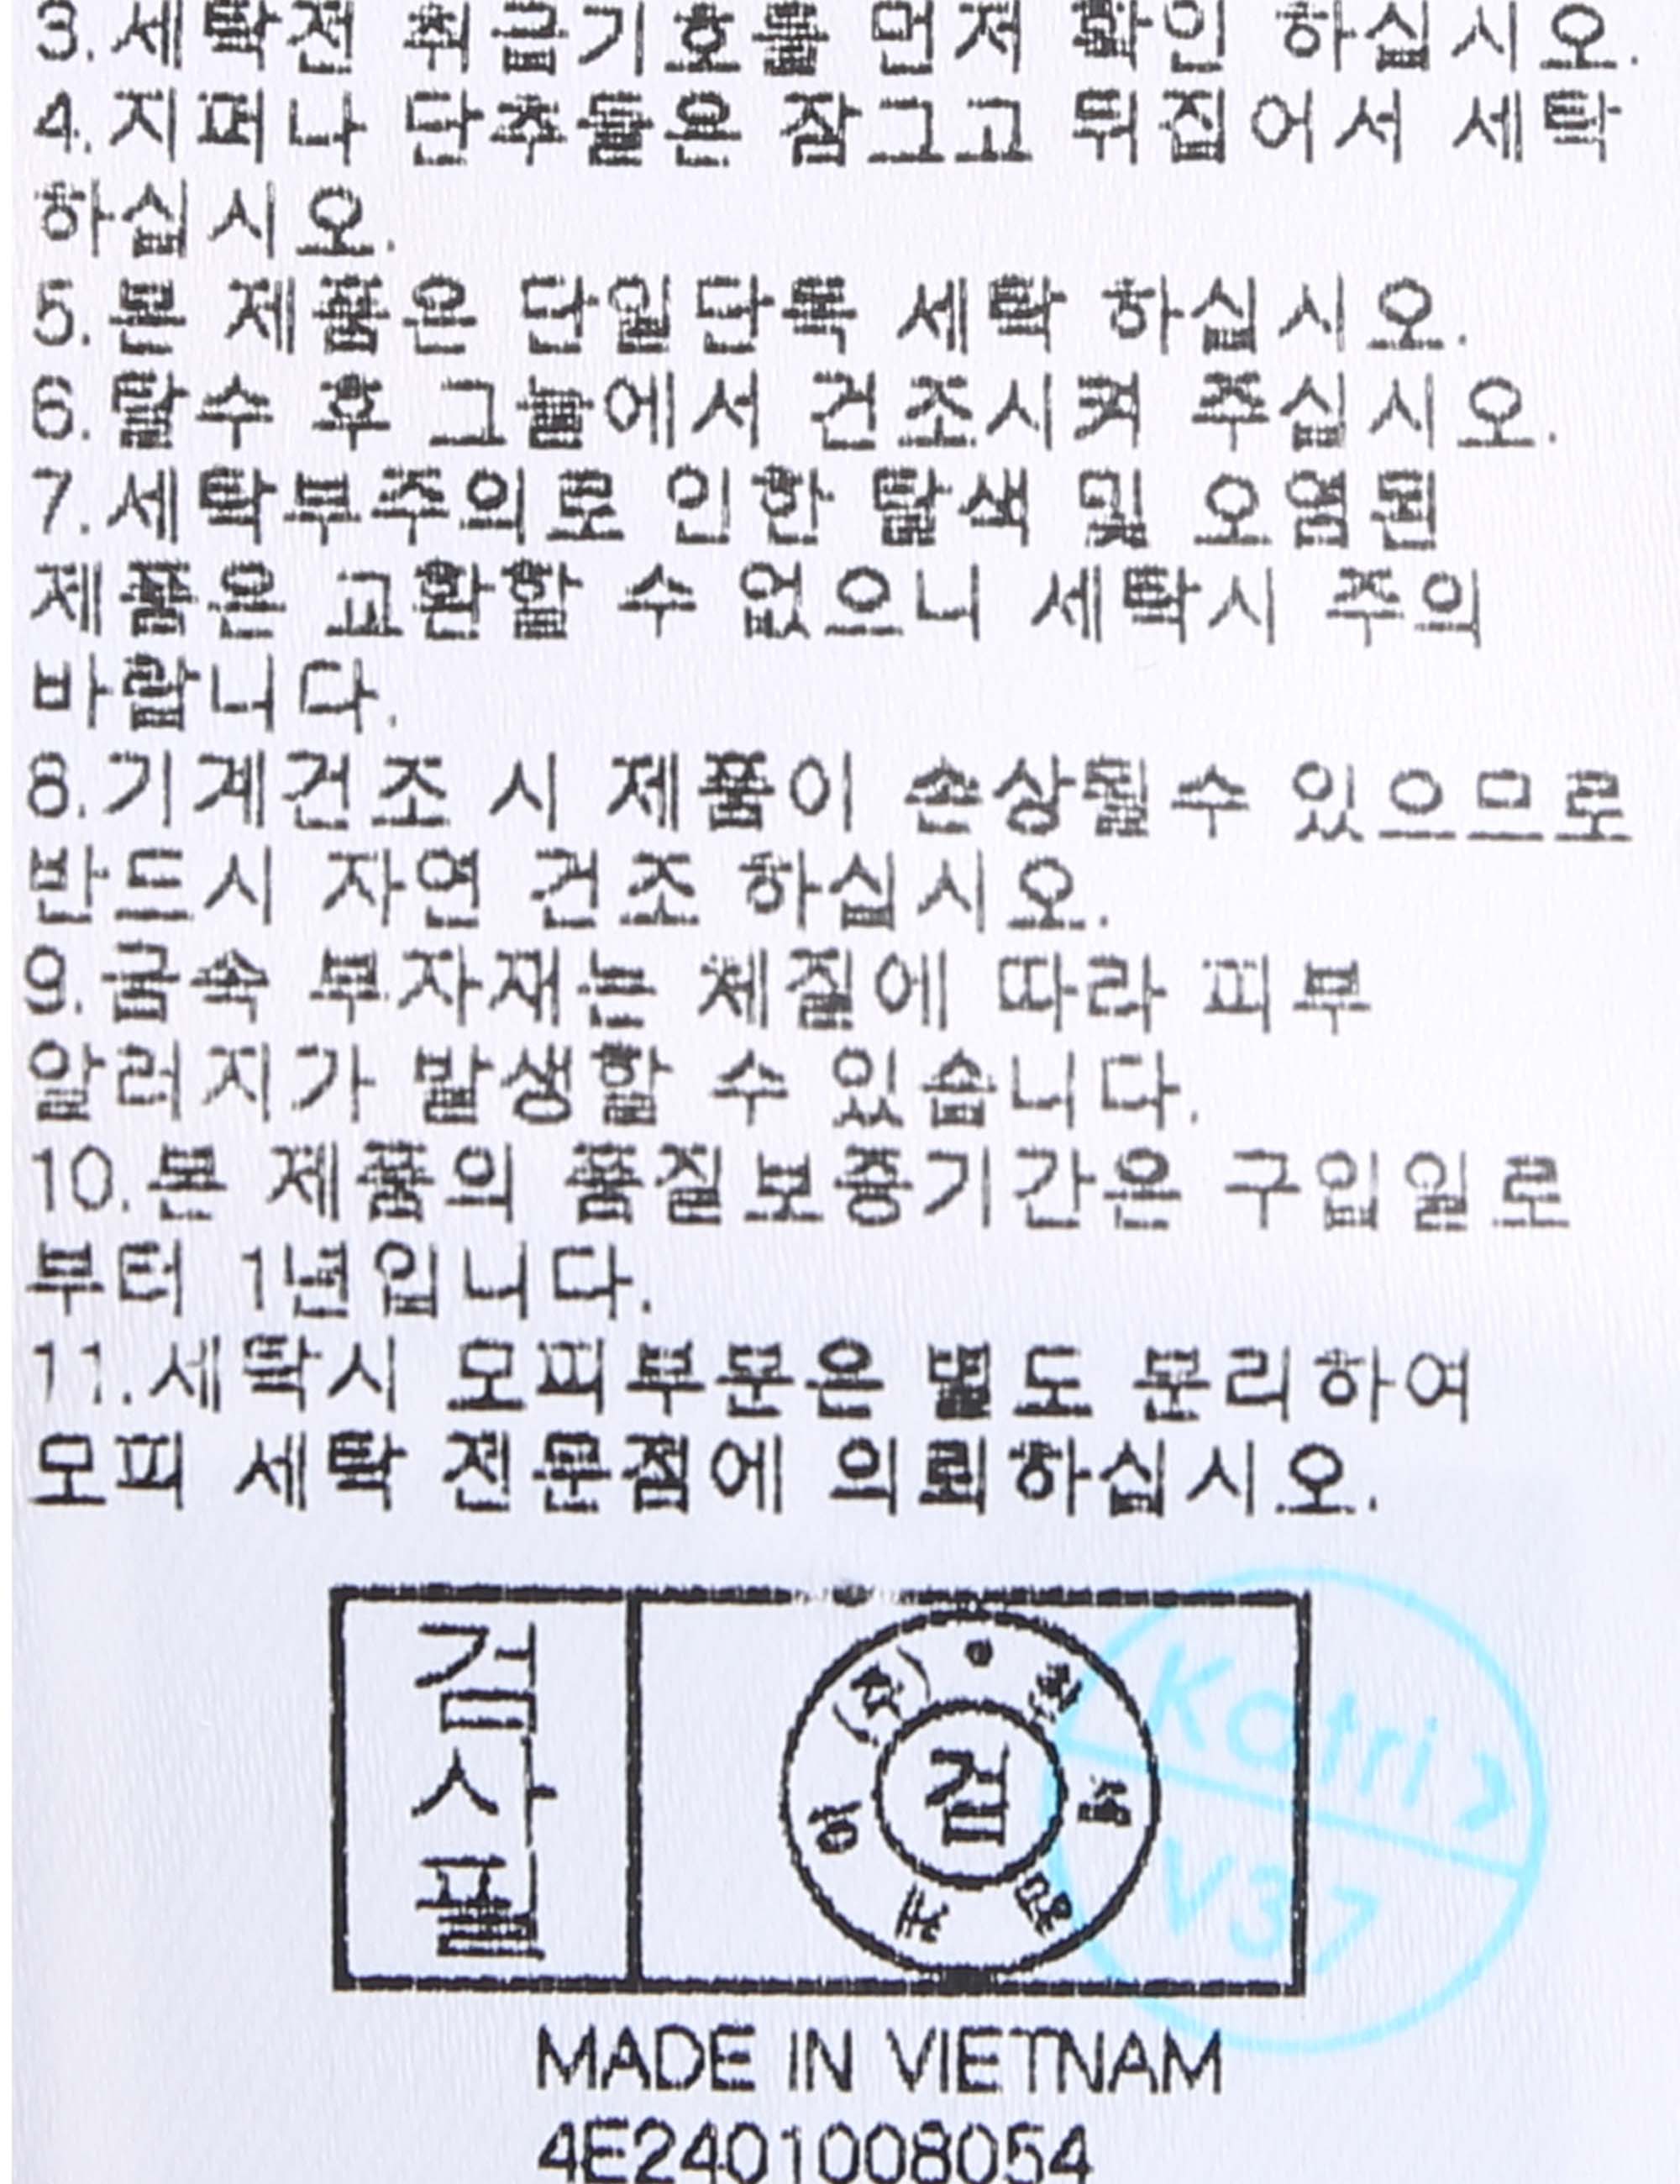 3.세탁전 취급기호를 먼저 확인 하십시오.
4.지퍼나 단추들은 잠그고 뒤집어서 세탁
하십시오.
5.본 제품은 단일단독 세탁 하십시오.
6.탈수 후 그늘에서 건조시켜 주십시오.
7.세탁부주의로 인한 탈색 및 오염된
제품은 교환할 수 없으니 세탁시 주의
바랍니다.
8.기계건조 시 제품이 손상될수 있으므로
반드시 자연 건조 하십시오.
9.금속 부자재는 체질에 따라 피부
알러지가 발생할 수 있습니다.
10.본 제품의 품질보증기간은 구입일로
부터 1년입니다.
11.세탁시 모피부분은 별도 분리하여
모피 세탁 전문점에 의뢰하십시오.
검사필
검
Katri
V37
MADE IN VIETNAM
4E2401008054